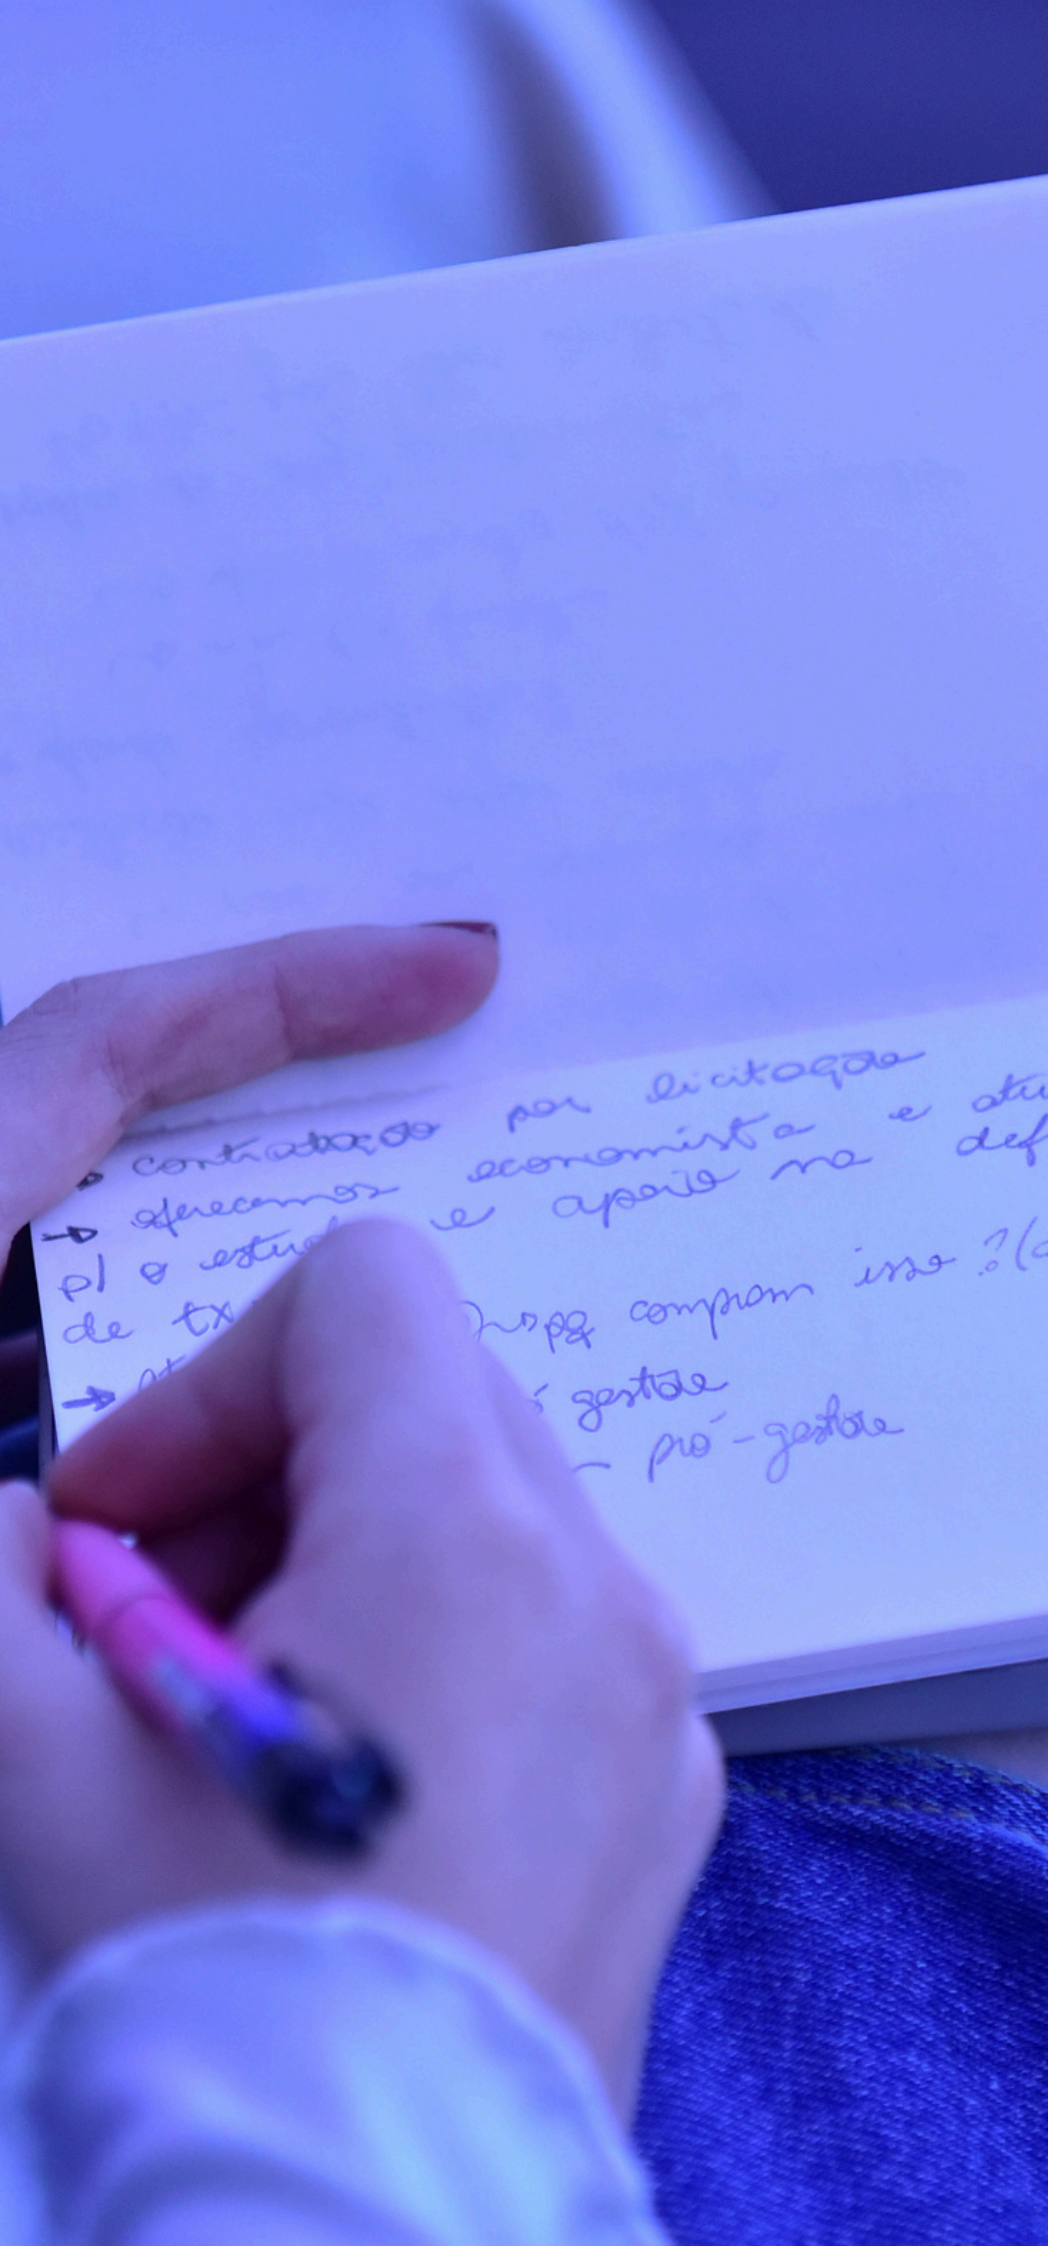 → contratação por licitação
→ oferecemos economista e atu
p/ o estud e apoio na def
de tx ↳ pq compram isso? (
→ gestão
pró-gestão